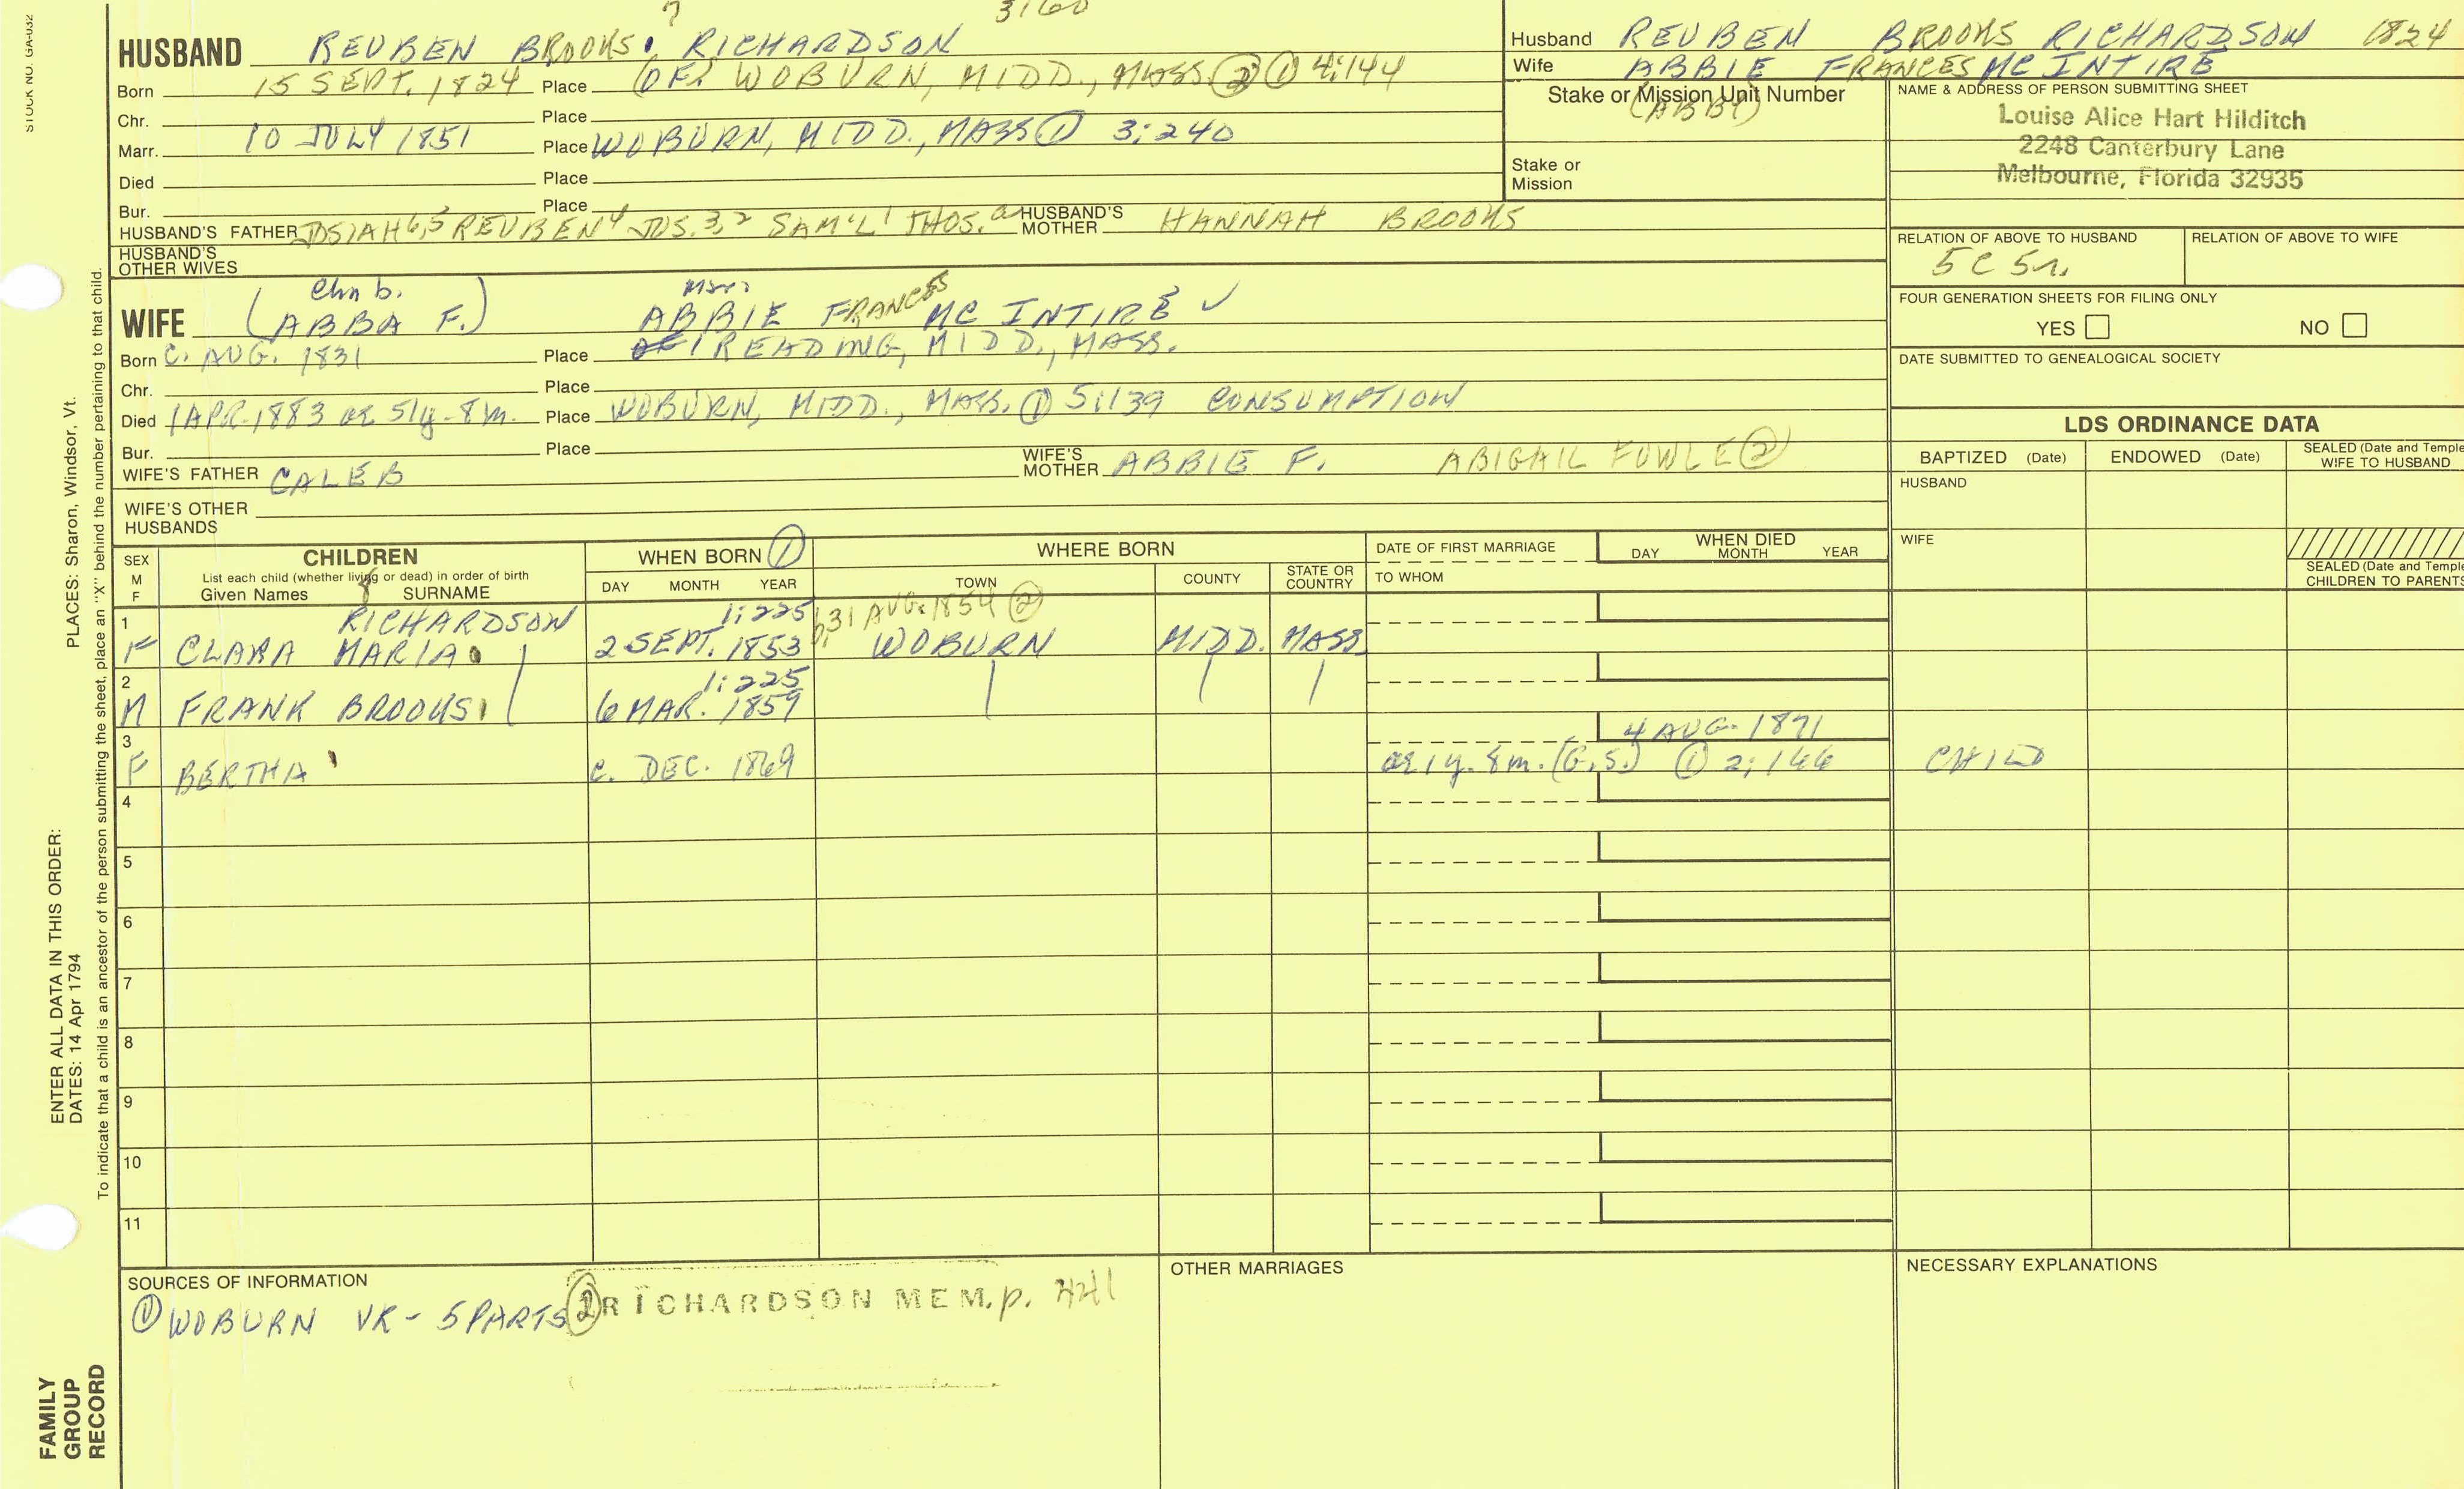 STOCK NO. GA-032
7 3160
HUSBAND REUBEN BROOKS RICHARDSON
Born 15 SEPT. 1824 Place (OF) WOBURN, MIDD., MASS ② ① 4:144
Chr. Place
Marr. 10 JULY 1851 Place WOBURN, MIDD., MASS ① 3:240
Died Place
Bur. Place
HUSBAND'S FATHER JOSIAH 6,5 REUBEN 4 JOS. 3,2 SAM'L 1 THOS. a HUSBAND'S MOTHER HANNAH BROOKS
HUSBAND'S OTHER WIVES
Husband REUBEN BROOKS RICHARDSON 1824
Wife ABBIE FRANCES MC INTIRE
(ABBY)
Stake or Mission Unit Number
Stake or Mission
NAME & ADDRESS OF PERSON SUBMITTING SHEET
Louise Alice Hart Hilditch
2248 Canterbury Lane
Melbourne, Florida 32935
RELATION OF ABOVE TO HUSBAND RELATION OF ABOVE TO WIFE
5C 5r.
FOUR GENERATION SHEETS FOR FILING ONLY
YES NO
DATE SUBMITTED TO GENEALOGICAL SOCIETY
WIFE (ABBA F.) ABBIE FRANCES MC INTIRE ✓
Born C. AUG. 1831 Place READING, MIDD., MASS.
Chr. Place
Died 1 APR. 1883 ae 51y-8m. Place WOBURN, MIDD., MASS. ① 5:139 CONSUMPTION
Bur. Place
WIFE'S FATHER CALEB WIFE'S MOTHER ABBIE F. ABIGAIL FOWLE ②
WIFE'S OTHER HUSBANDS
LDS ORDINANCE DATA
BAPTIZED (Date) ENDOWED (Date) SEALED (Date and Temple) WIFE TO HUSBAND
HUSBAND
WIFE
SEALED (Date and Temple) CHILDREN TO PARENTS
SEX M F
CHILDREN
List each child (whether living or dead) in order of birth
Given Names SURNAME
WHEN BORN ①
DAY MONTH YEAR
WHERE BORN
TOWN COUNTY STATE OR COUNTRY
DATE OF FIRST MARRIAGE
TO WHOM
WHEN DIED
DAY MONTH YEAR
1 RICHARDSON 1:225 31 AUG. 1854 ②
F CLARA MARIA 2 SEPT. 1853 WOBURN MIDD. MASS
2 1:225
M FRANK BROOKS 6 MAR. 1859
3 4 AUG. 1871
F BERTHA C. DEC. 1869 ae 1y. 8m. (G.S.) ① 2:166 CHILD
4
5
6
7
8
9
10
11
SOURCES OF INFORMATION
① WOBURN VR - 5 PARTS ② RICHARDSON MEM. p. 441
OTHER MARRIAGES
NECESSARY EXPLANATIONS
PLACES: Sharon, Windsor, Vt.
To indicate that a child is an ancestor of the person submitting the sheet, place an "X" behind the number pertaining to that child.
ENTER ALL DATA IN THIS ORDER:
DATES: 14 Apr 1794
FAMILY
GROUP
RECORD